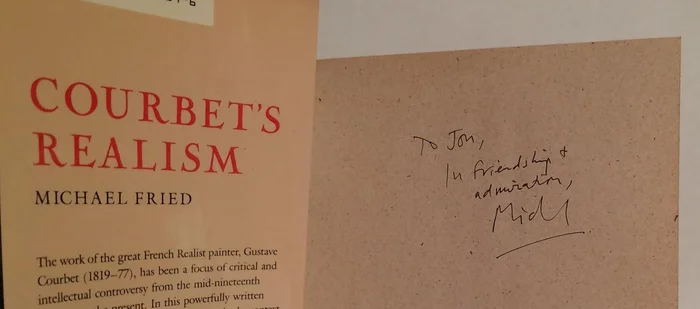 COURBET'S
REALISM
MICHAEL FRIED
The work of the great French Realist painter, Gustave
Courbet (1819–77), has been a focus of critical and
intellectual controversy from the mid-nineteenth
present. In this powerfully written
To Jon,
In friendship +
admiration,